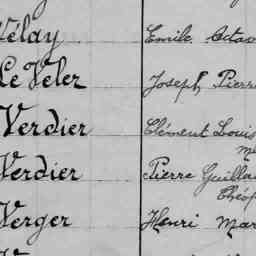 Vélay Emile Octav
Le Veler Joseph Pierre
Verdier Clément Louis
Verdier Pierre Guillau
Théop
Verger Henri Mar